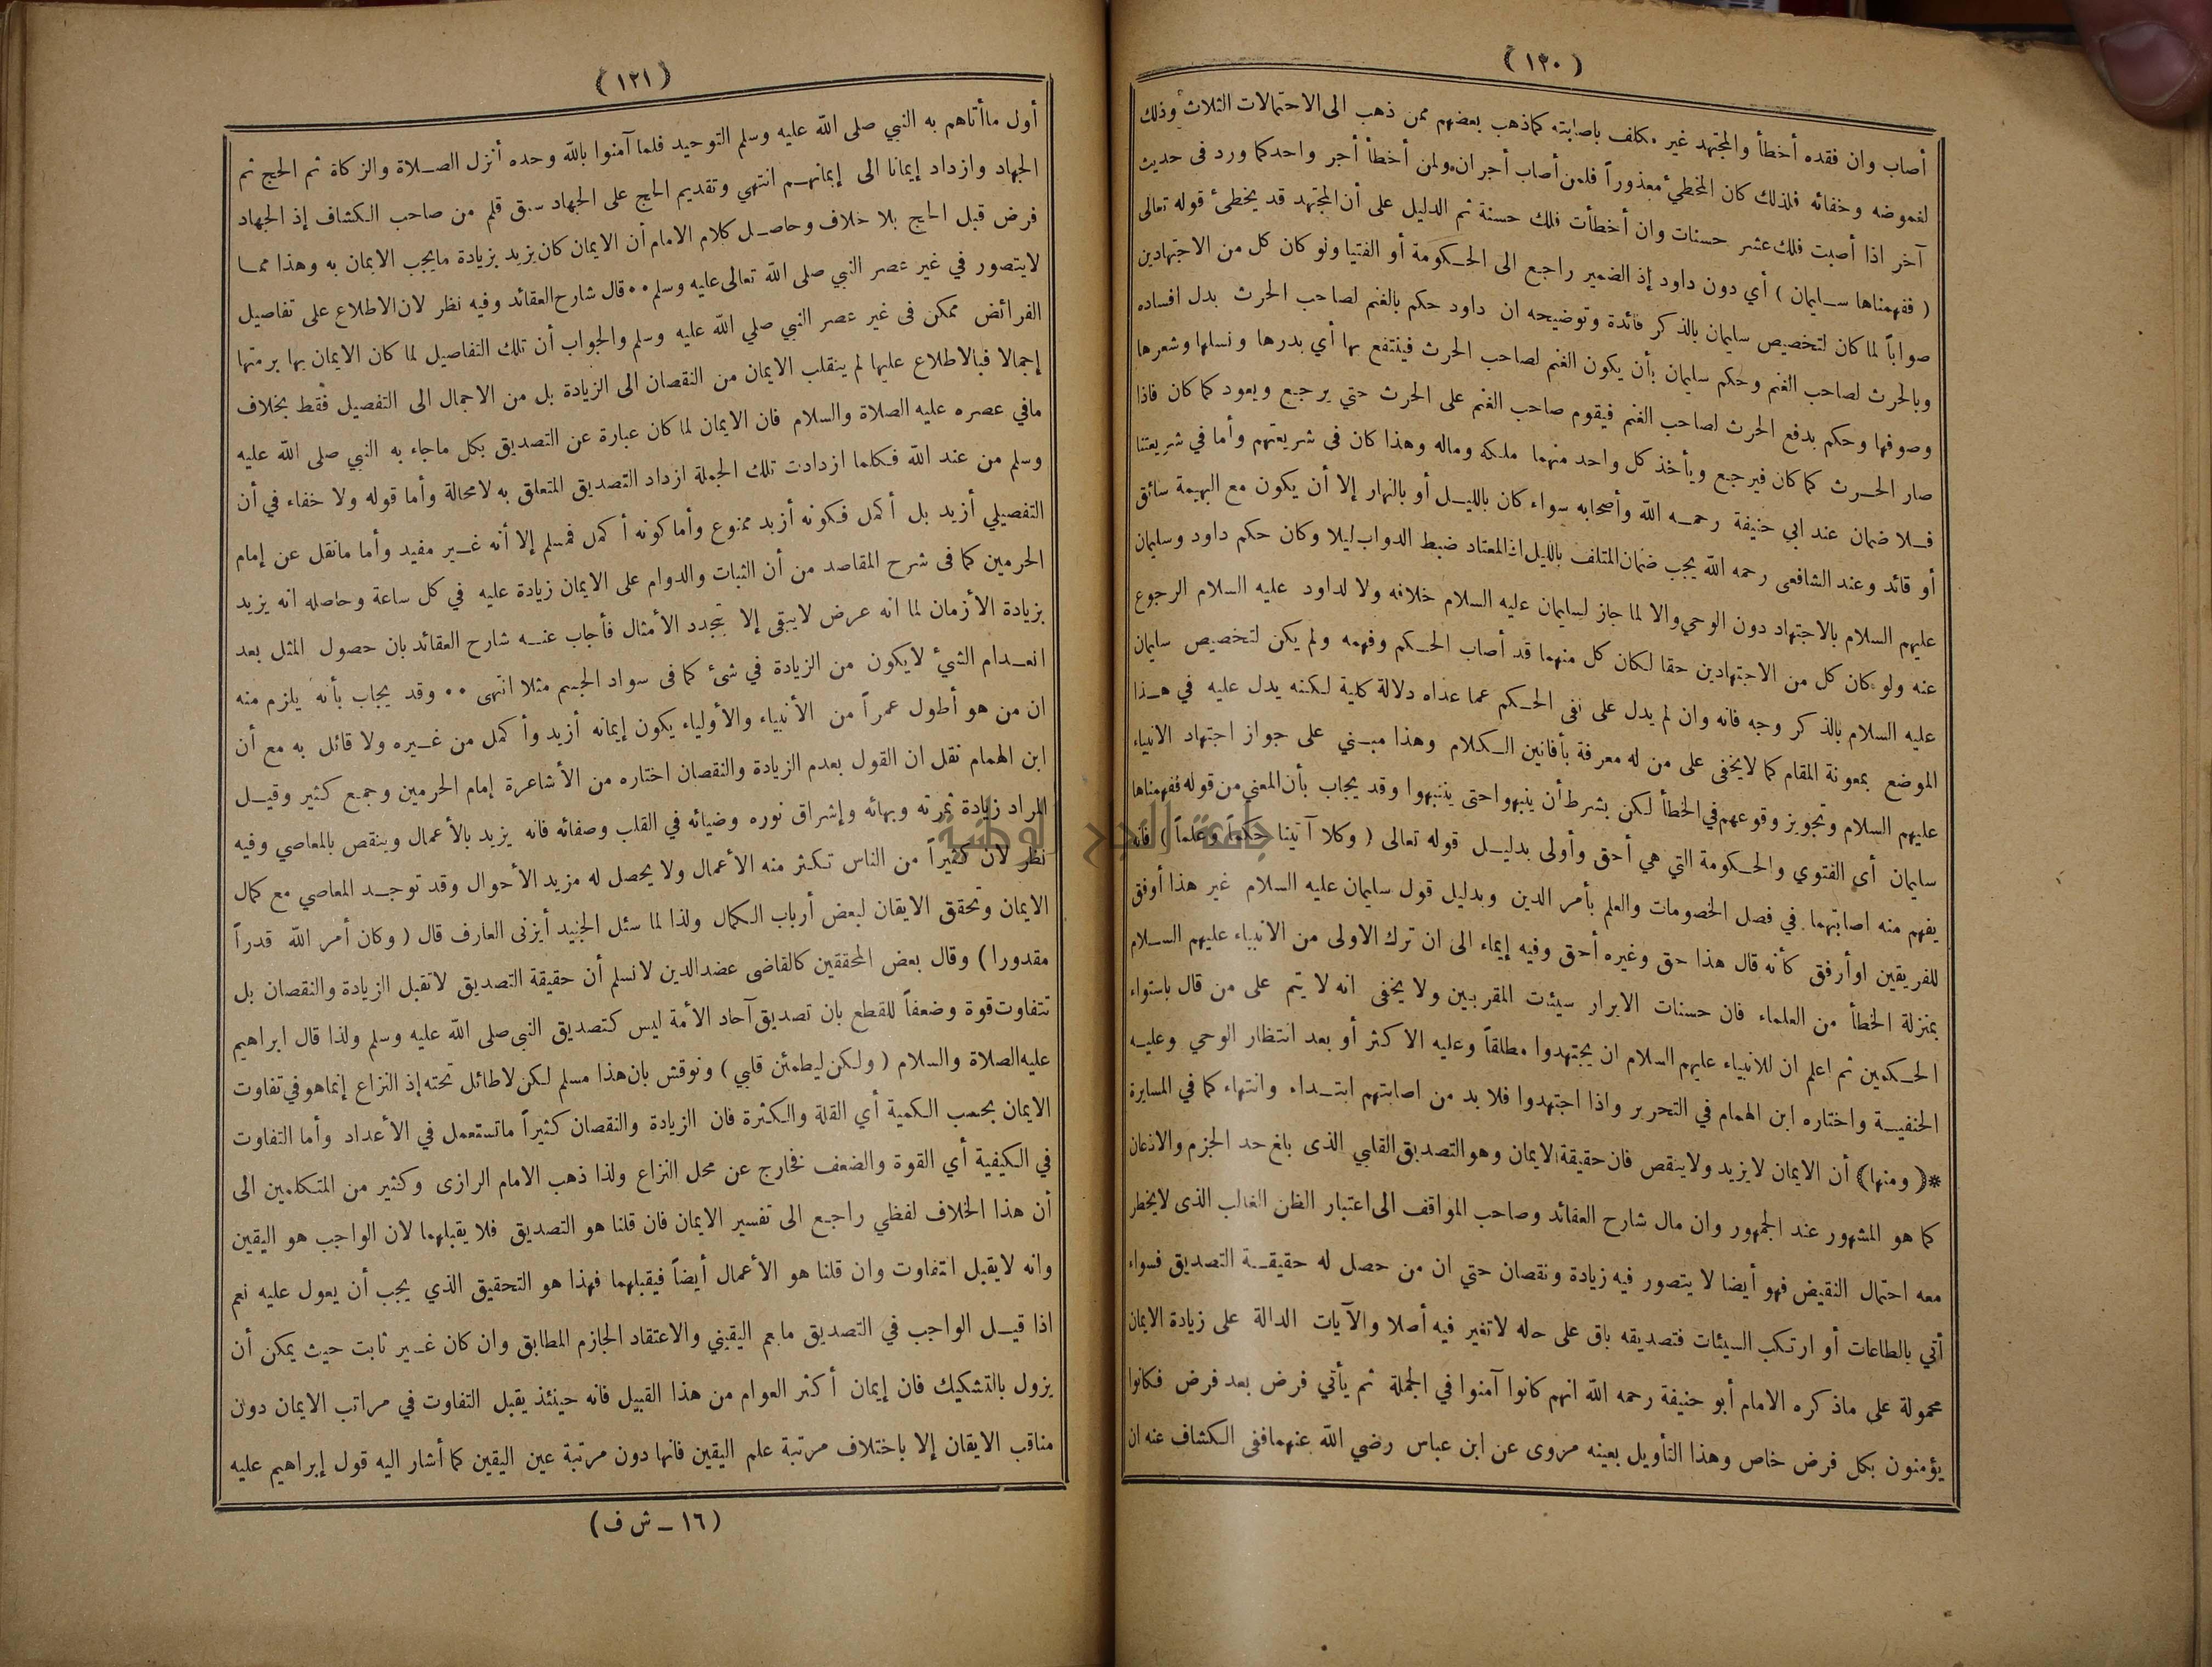 (١٢٠)
أصاب وان فقده أخطأ والمجتهد غير مكلف باصابته كماذهب بعضهم ممن ذهب الى الاحتمالات الثلاث وذلك
لغموضه وخفائه فلذلك كان المخطئ معذوراً فلمن أصاب أجران ولمن أخطأ أجر واحد كما ورد فى حديث
آخر اذا أصبت فلك عشر حسنات وان أخطأت فلك حسنة ثم الدليل على أن المجتهد قد يخطئ قوله تعالى
( ففهمناها سليمان ) أي دون داود إذ الضمير راجع الى الحكومة أو الفتيا ولو كان كل من الاجتهادين
صواباً لما كان لتخصيص سليمان بالذكر فائدة وتوضيحه ان داود حكم بالغنم لصاحب الحرث بدل افساده
وبالحرث لصاحب الغنم وحكم سليمان بأن يكون الغنم لصاحب الحرث فينتفع بها أي بدرها ونسلها وشعرها
وصوفها وحكم بدفع الحرث لصاحب الغنم فيقوم صاحب الغنم على الحرث حتي يرجع ويعود كما كان فاذا
صار الحرث كما كان فيرجع ويأخذ كل واحد منهما ملكه وماله وهذا كان فى شريعتهم وأما في شريعتنا
فلا ضمان عند ابي حنيفة رحمه الله وأصحابه سواء كان بالليل أو بالنهار إلا أن يكون مع البهيمة سائق
أو قائد وعند الشافعى رحمه الله يجب ضمان المتلف بالليل اذ المعتاد ضبط الدواب ليلا وكان حكم داود وسليمان
عليهم السلام بالاجتهاد دون الوحي والا لما جاز لسليمان عليه السلام خلافه ولا لداود عليه السلام الرجوع
عنه ولو كان كل من الاجتهادين حقا لكان كل منهما قد أصاب الحكم وفهمه ولم يكن لتخصيص سليمان
عليه السلام بالذكر وجه فانه وان لم يدل على نفى الحكم عما عداه دلالة كلية لكنه يدل عليه في هذا
الموضع بمعونة المقام كما لايخفى على من له معرفة بأفانين الكلام وهذا مبني على جواز اجتهاد الانبياء
عليهم السلام وتجويز وقوعهم في الخطأ لكن بشرط أن ينبهوا حتى يتنبهوا وقد يجاب بأن المعنى من قوله ففهمناها
سليمان أي الفتوي والحكومة التي هي أحق وأولى بدليل قوله تعالى ( وكلا آتينا حكماً وعلماً ) فانه
يفهم منه اصابتهما في فصل الخصومات والعلم بأمر الدين وبدليل قول سليمان عليه السلام غير هذا أوفق
للفريقين اوأرفق كأنه قال هذا حق وغيره أحق وفيه إيماء الى ان ترك الاولى من الانبياء عليهم السلام
بمنزلة الخطأ من العلماء فان حسنات الابرار سيئت المقربين ولا يخفى انه لا يتم على من قال باستواء
الحكمين ثم اعلم ان للانبياء عليهم السلام ان يجتهدوا مطلقاً وعليه الاكثر أو بعد انتظار الوحي وعليه
الحنفية واختاره ابن الهمام في التحرير واذا اجتهدوا فلا بد من اصابتهم ابتداء وانتهاء كما في المسايرة
*( ومنها ) أن الايمان لايزيد ولاينقص فان حقيقة الايمان وهو التصديق القلبي الذى بلغ حد الجزم والاذعان
كما هو المشهور عند الجمهور وان مال شارح العقائد وصاحب المواقف الى اعتبار الظن الغالب الذى لايخطر
معه احتمال النقيض فهو أيضا لا يتصور فيه زيادة ونقصان حتي ان من حصل له حقيقة التصديق فسواء
أتي بالطاعات أو ارتكب السيئات فتصديقه باق على حاله لا تغير فيه أصلا والآيات الدالة على زيادة الايمان
محمولة على ماذكره الامام أبو حنيفة رحمه الله انهم كانوا آمنوا في الجملة ثم يأتي فرض بعد فرض فكانوا
يؤمنون بكل فرض خاص وهذا التأويل بعينه مروى عن ابن عباس رضي الله عنهما ففى الكشاف عنه ان
(١٢١)
أول ماأتاهم به النبي صلى الله عليه وسلم التوحيد فلما آمنوا بالله وحده أنزل الصلاة والزكاة ثم الحج ثم
الجهاد وازداد إيمانا الى إيمانهم انتهي وتقديم الحج على الجهاد سبق قلم من صاحب الكشاف إذ الجهاد
فرض قبل الحج بلا خلاف وحاصل كلام الامام أن الايمان كان يزيد بزيادة مايجب الايمان به وهذا مما
لايتصور في غير عصر النبي صلى الله تعالى عليه وسلم ٠٠ قال شارح العقائد وفيه نظر لان الاطلاع على تفاصيل
الفرائض ممكن فى غير عصر النبي صلي الله عليه وسلم والجواب أن تلك التفاصيل لما كان الايمان بها برمتها
إجمالا فبالاطلاع عليها لم ينقلب الايمان من النقصان الى الزيادة بل من الاجمال الى التفصيل فقط بخلاف
مافي عصره عليه الصلاة والسلام فان الايمان لما كان عبارة عن التصديق بكل ماجاء به النبي صلى الله عليه
وسلم من عند الله فكلما ازدادت تلك الجملة ازداد التصديق المتعلق به لامحالة وأما قوله ولا خفاء في أن
التفصيلي أزيد بل أكمل فكونه أزيد ممنوع وأما كونه أكمل فمسلم إلا أنه غير مفيد وأما مانقل عن إمام
الحرمين كما فى شرح المقاصد من أن الثبات والدوام على الايمان زيادة عليه في كل ساعة وحاصله انه يزيد
بزيادة الأزمان لما انه عرض لايبقى إلا بتجدد الأمثال فأجاب عنه شارح العقائد بان حصول المثل بعد
انعدام الشيء لايكون من الزيادة في شئ كما فى سواد الجسم مثلا انتهى ٠٠ وقد يجاب بأنه يلزم منه
ان من هو أطول عمراً من الأنبياء والأولياء يكون إيمانه أزيد وأكمل من غيره ولا قائل به مع أن
ابن الهمام نقل ان القول بعدم الزيادة والنقصان اختاره من الأشاعرة إمام الحرمين وجمع كثير وقيل
المراد زيادة ثمرته وبهائه وإشراق نوره وضيائه في القلب وصفائه فانه يزيد بالأعمال وينقص بالمعاصي وفيه
نظر لان كثيراً من الناس تكثر منه الأعمال ولا يحصل له مزيد الأحوال وقد توجد المعاصي مع كمال
الايمان وتحقق الايقان لبعض أرباب الكمال ولذا لما سئل الجنيد أيزنى العارف قال ( وكان أمر الله قدراً
مقدورا ) وقال بعض المحققين كالقاضى عضدالدين لانسلم أن حقيقة التصديق لاتقبل الزيادة والنقصان بل
تتفاوت قوة وضعفاً للقطع بان تصديق آحاد الأمة ليس كتصديق النبي صلى الله عليه وسلم ولذا قال ابراهيم
عليه الصلاة والسلام ( ولكن ليطمئن قلبي ) ونوقش بان هذا مسلم لكن لاطائل تحته إذ النزاع إنماهو في تفاوت
الايمان بحسب الكمية أي القلة والكثرة فان الزيادة والنقصان كثيراً ماتستعمل في الأعداد وأما التفاوت
في الكيفية أي القوة والضعف فخارج عن محل النزاع ولذا ذهب الامام الرازى وكثير من المتكلمين الى
أن هذا الخلاف لفظي راجع الى تفسير الايمان فان قلنا هو التصديق فلا يقبلهما لان الواجب هو اليقين
وانه لايقبل التفاوت وان قلنا هو الأعمال أيضاً فيقبلهما فهذا هو التحقيق الذي يجب أن يعول عليه نعم
اذا قيل الواجب في التصديق مايعم اليقيني والاعتقاد الجازم المطابق وان كان غير ثابت حيث يمكن أن
يزول بالتشكيك فان إيمان أكثر العوام من هذا القبيل فانه حينئذ يقبل التفاوت في مراتب الايمان دون
مناقب الايقان إلا باختلاف مرتبة علم اليقين فانها دون مرتبة عين اليقين كما أشار اليه قول إبراهيم عليه
(١٦ – ش ف)
جامعة النجاح الوطنية